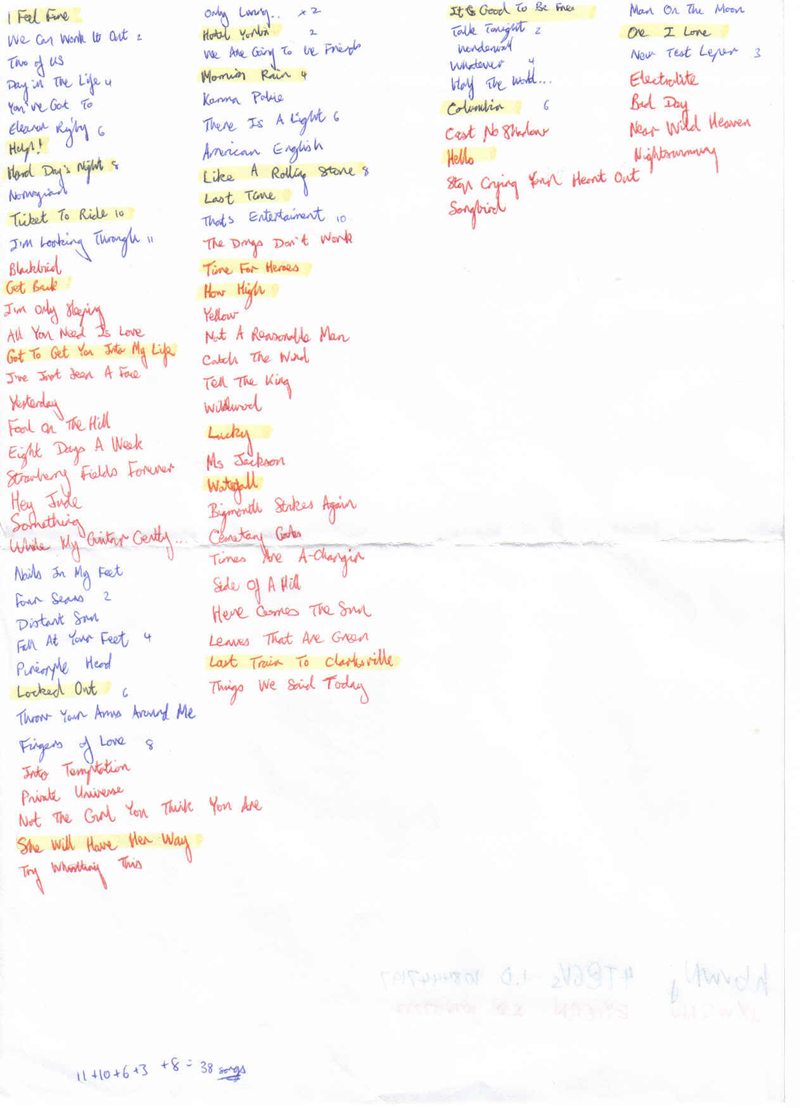 I Feel Fine
We Can Work It Out 2
Two of Us
Day in The Life 4
You've Got To
Eleanor Rigby 6
Help!
Hard Day's Night 8
Norwegian
Ticket To Ride 10
I'm Looking Through 11
Blackbird
Get Back
I'm Only Sleeping
All You Need Is Love
Got To Get You Into My Life
I've Just Seen A Face
Yesterday
Fool On The Hill
Eight Days A Week
Strawberry Fields Forever
Hey Jude
Something
While My Guitar Gently...
Nails In My Feet
Four Seasons 2
Distant Sun
Fall At Your Feet 4
Pineapple Head
Locked Out 6
Throw Your Arms Around Me
Fingers of Love 8
Into Temptation
Private Universe
Not The Girl You Think You Are
She Will Have Her Way
Try Whistling This
Only Living.. x 2
Hotel Yorba 2
We Are Going To be Friends
Morning Rain 4
Karma Police
There Is A Light 6
American English
Like A Rolling Stone 8
Last Time
That's Entertainment 10
The Drugs Don't Work
Time For Heroes
How High
Yellow
Not A Reasonable Man
Catch The Wind
Tell The King
Wildwood
Lucky
Ms Jackson
Waterfall
Bigmouth Strikes Again
Cemetary Gates
Times Are A-Changin
Side Of A Hill
Here Comes The Sun
Leaves That Are Green
Last Train To Clarksville
Things We Said Today
It's Good To Be Free
Talk Tonight 2
Wonderwall
Whatever 4
Half The World...
Columbia 6
Cast No Shadow
Hello
Stop Crying Your Heart Out
Songbird
Man On The Moon
One I Love
New Test Leper 3
Electrolite
Bad Day
Near Wild Heaven
Nightswimming
11+10+6+3 +8 = 38 songs